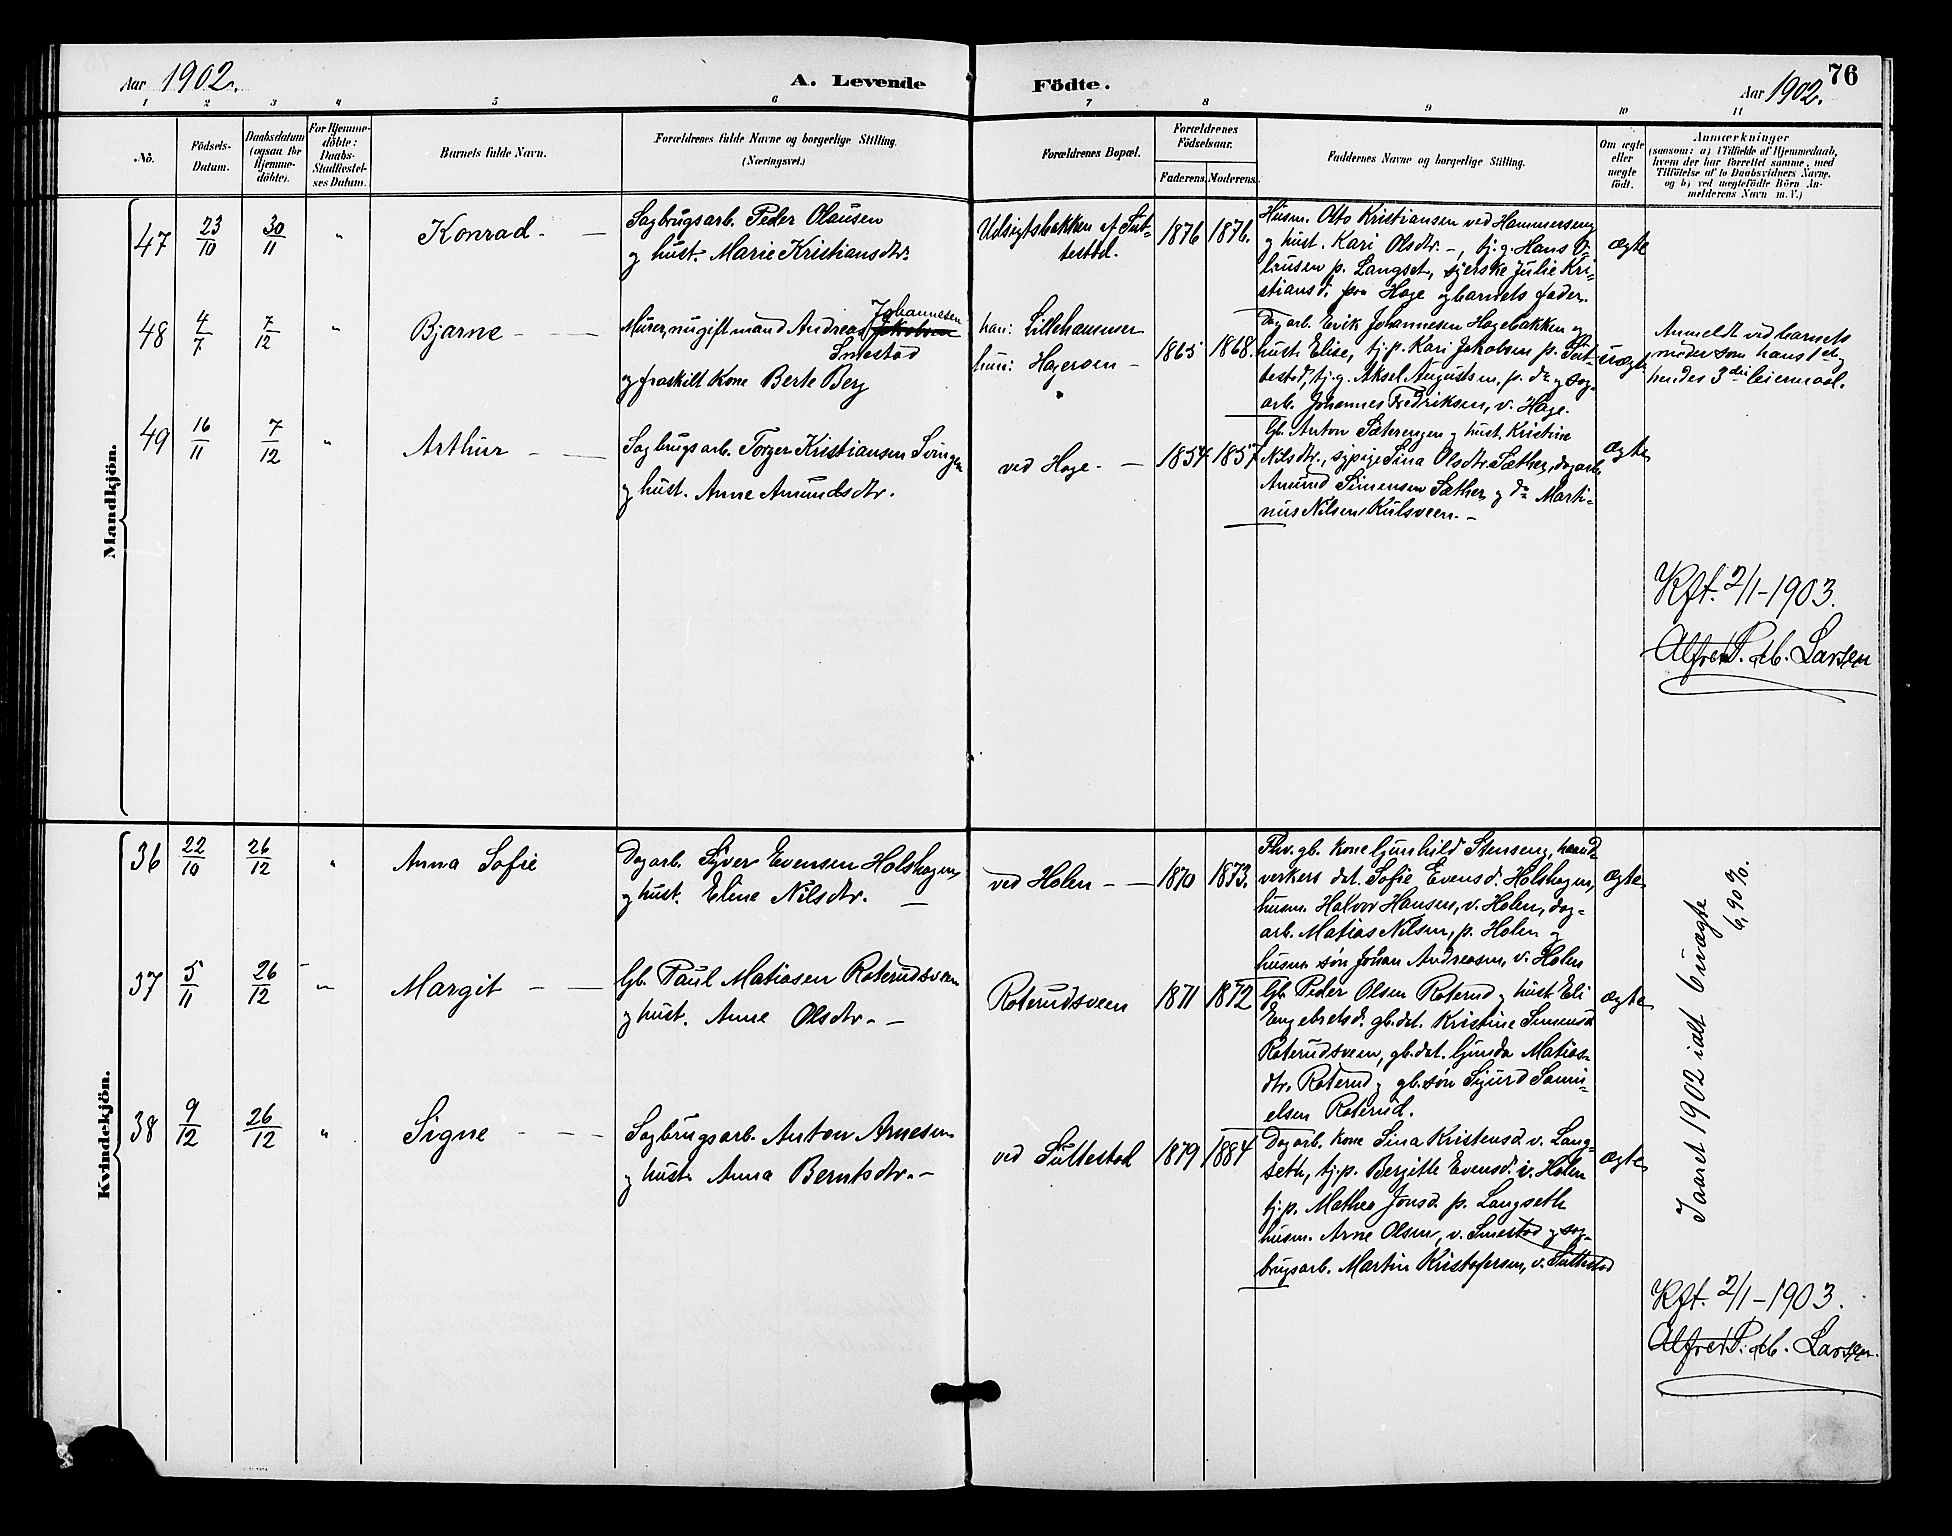 Aar 1902. A. Levende Födte. Aar 1902. 76
1 2 3 4 5 6 7 8 9 10 11
No. Födsels-Datum. Daabsdatum (ogsaa for Hjemme-döbte). For Hjemme-döbte: Daabs-Stadfæstel-ses Datum. Barnets fulde Navn. Forældrenes fulde Navne og borgerlige Stilling. (Næringsvei.) Forældrenes Bopæl. Forældrenes Födselsaar. Faderens. Moderens. Faddernes Navne og borgerlige Stilling. Om ægte eller uægte födt. Anmærkninger
(saasom: a) i Tilfælde af Hjemmedaab,
hvem der har forrettet samme, med
Tilföielse af to Daabsvidners Navne,
og b) ved uægtefödte Börn An-
melderens Navn m. V.)
Mandkjön.
47 23/10 30/11 " Konrad - —
Sagbrugsarb. Peder Olausen
og hust. Marie Kristiansdtr.
Udsigtsbakken af Sut-
testad.
1876 1876.
Husm. Otto Kristiansen ved Hammerseng
og hust. Kari Olsdtr. -, tj.g. Hans O-
lausen p. Langset, Julie Kri-
stiansd. fra Hage og barnets fader.
ægte
48 4/7 7/12 " Bjarne - —
Murer, nugift mand Andreas Jakobsen Johannesen
Smestad
og fraskilt Kone Berte Berg
han: Lillehammer
hun: Hageroen -
1865 1868.
Dagarb. Erik Johannesen Hagebakken og
hust. Elise, tj.p. Kari Jakobsen p. Sut-
testad, tj.g. Aksel Augustsen, p. do og sag-
arb. Johannes Fredriksen, v. Hage.
uægte
Anmeldt ved barnets
moder som hans 1ste og
hendes 3die leiermaal.
49 16/11 7/12 " Arthur - —
Sagbrugsarb. Torger Kristiansen Svingen
og hust. Anne Amundsdtr.
ved Hage. —
1854 1857
Gb. Anton Sæterengen og hust. Kristine
Nilsdtr., sypige Sina Olsdtr. Sæther, dagarb.
Amund Simensen Sæther og do Marti-
nus Nilsen Kulsveen. -
ægte
Kft. 2/1-1903.
Alfred P. Larsen
Kvindekjön.
36 22/10 26/12 " Anna Sofie
Dagarb. Syver Evensen Holshagen
og hust. Eline Nilsdtr. —
ved Holen - —
1870 1873.
Fhv. gb. kone Gunhild Stenseng, haand-
verkers dat. Sofie Evensd. Holshagen,
husm. Halvor Hansen, v. Holen, dag-
arb. Matias Nilsen, p. Holen og
husm. søn Johan Andreasen, v. Holen
ægte
37 5/11 26/12 " Margit - —
Gb. Paul Matiasen Roterudsveen
og hust. Anne Olsdtr. - —
Roterudsveen
1871 1872
Gb. Peder Olsen Roterud og hust. Eli
Engebretsd. gb.dat. Kristine Simensd.
Roterudsveen, gb.dat. Gunda Matias-
dtr. Roterud og gb. søn Sigurd Samu-
elsen Roterud.
ægte
38 9/12 26/12 " Signe - - —
Sagbrugsarb. Anton Arnesen
og hust. Anna Berntsdtr. -
ved Suttestad
1879 1884
Dagarb. kone Sina Kristensd. v. Lang-
seth, tj.p. Bergitte Evensd. v. Holen
tj.p. Mathea Jonsd. p. Langseth
husm. Arne Olsen, v. Smestad og sag-
brugsarb. Martin Kristofersen, v. Suttestad
ægte
I aaret 1902 ialt 6 uægte
6,90%.
Kft. 2/1-1903.
Alfred P. Larsen.